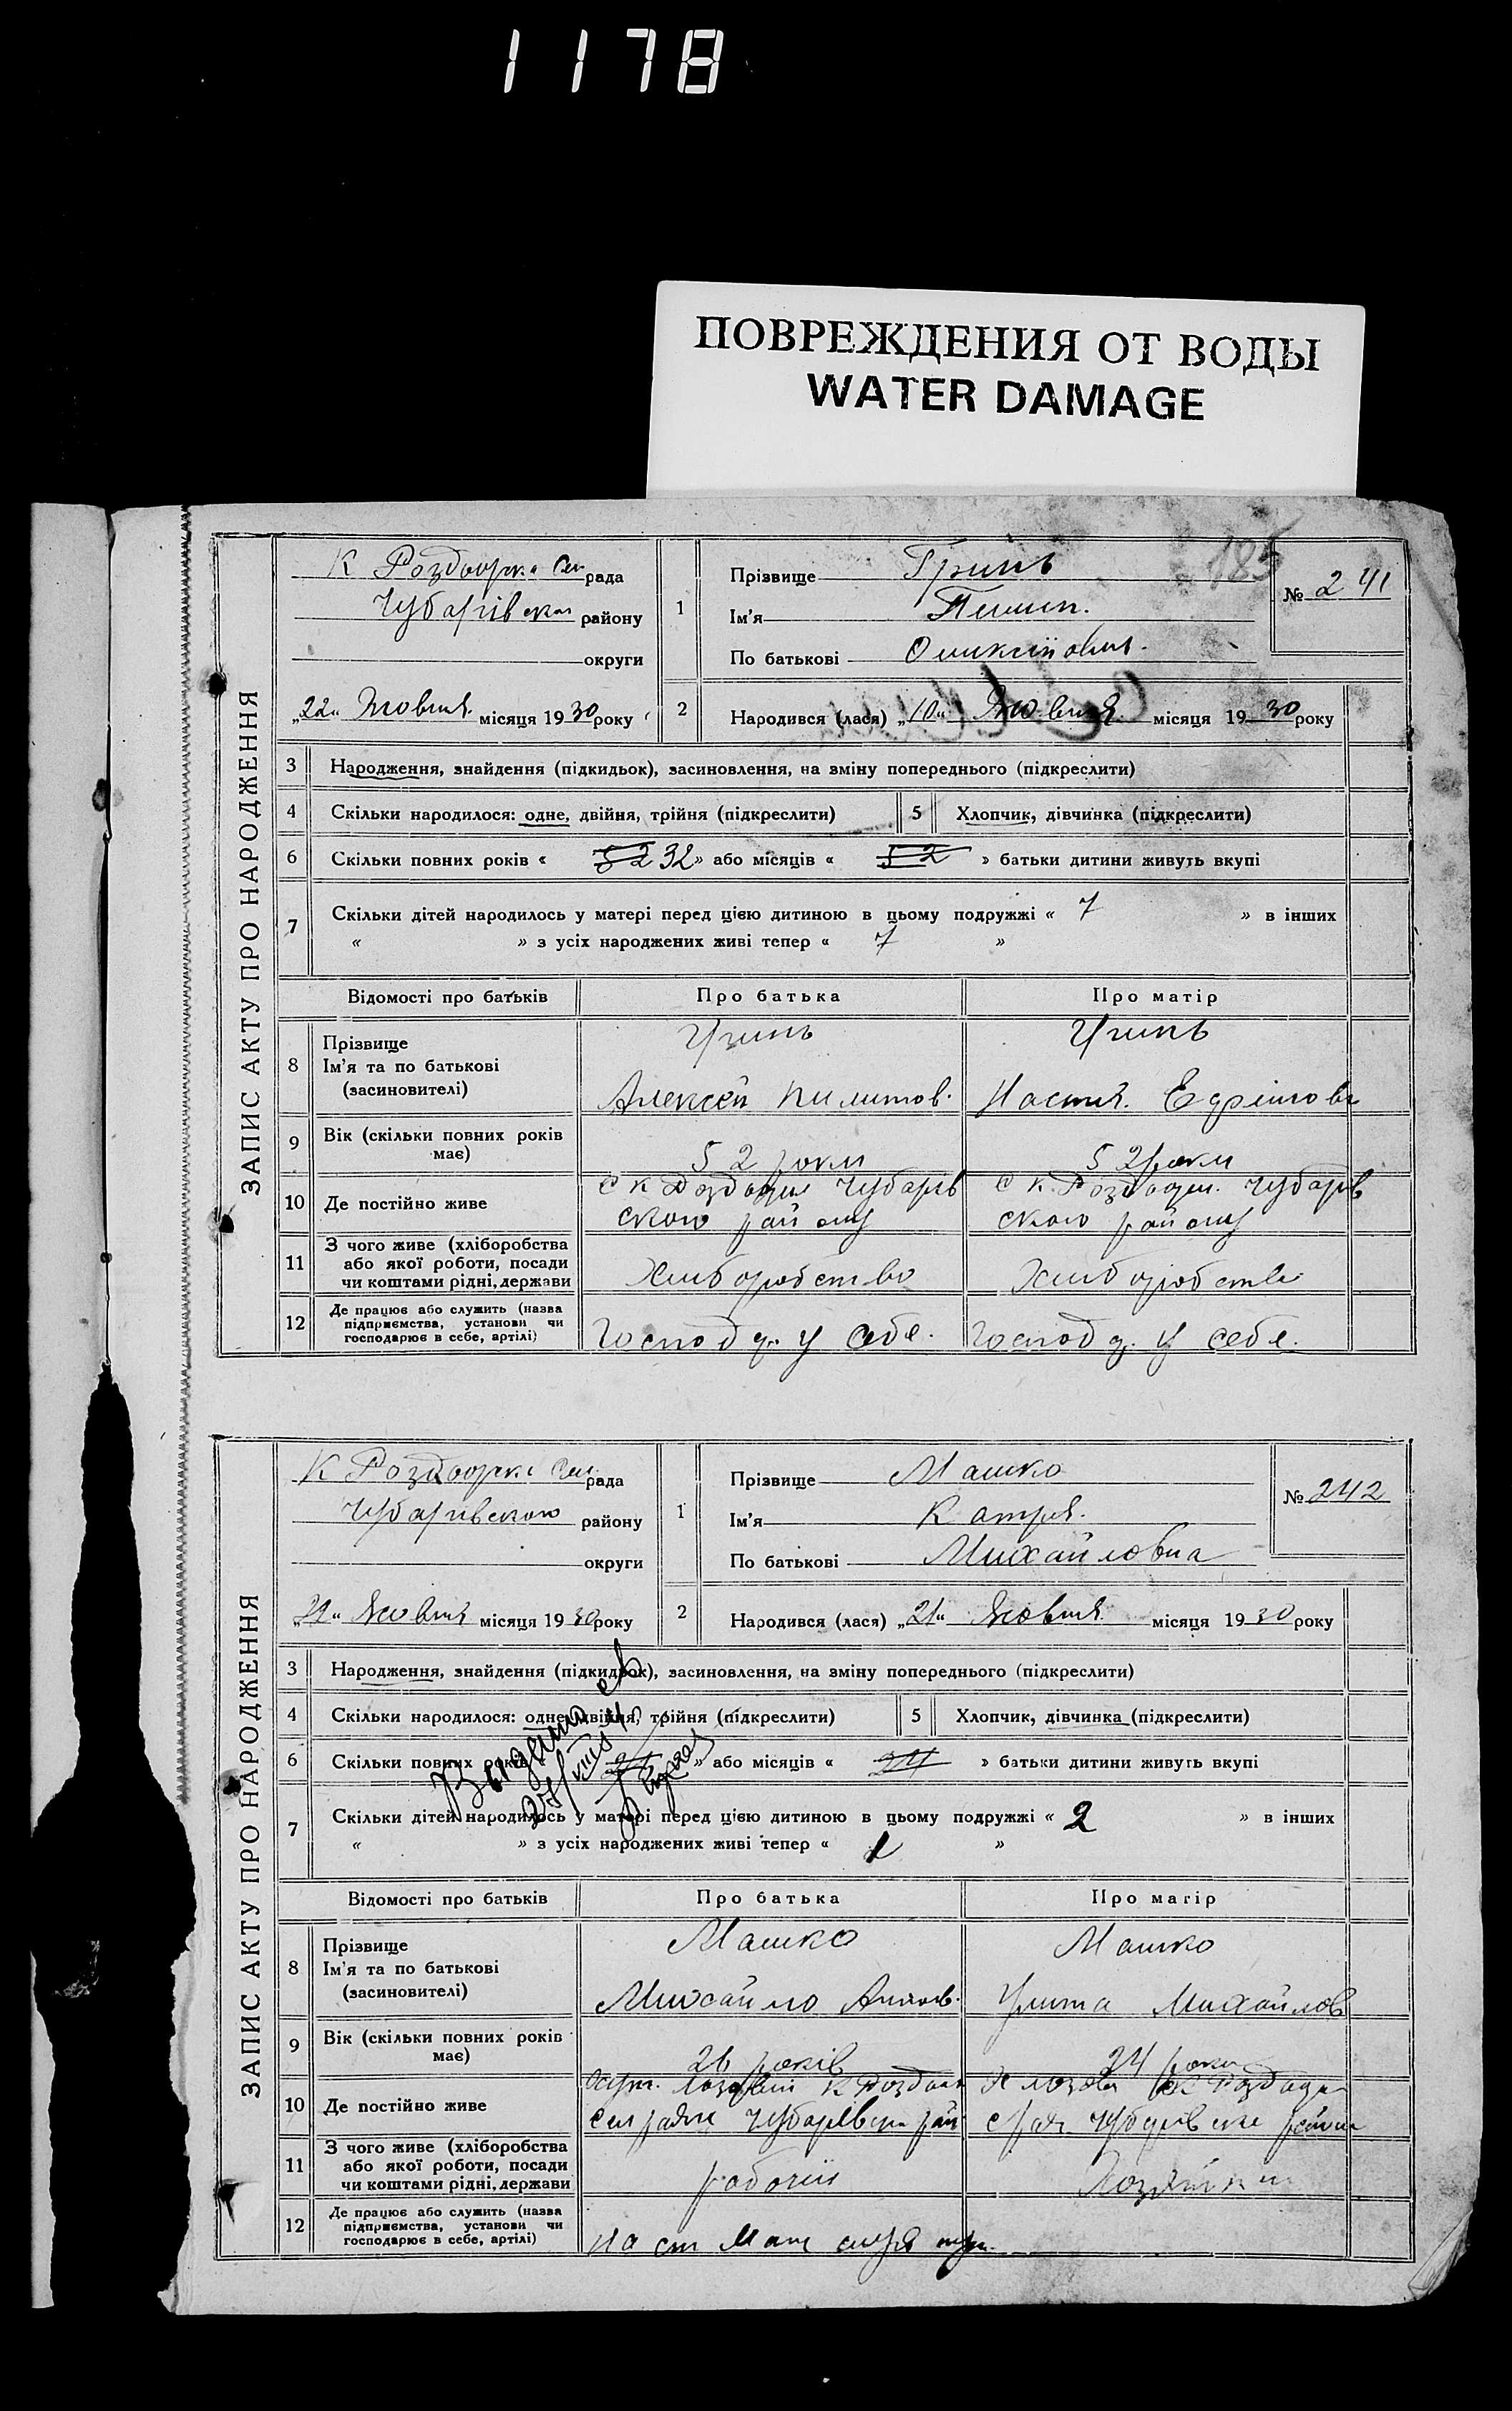 1178
ПОВРЕЖДЕНИЯ ОТ ВОДЫ
WATER DAMAGE
185
ЗАПИС АКТУ ПРО НАРОДЖЕННЯ
К Роздорська Сіл рада
Чубарівськ району
округи
„22“ Жовтня місяця 1930 року
1
Прізвище Гринь
Ім'я Пилип.
По батькові
№ 241
2
Народився (лася) „10“ Жовтня місяця 1930 року
3 Народження, знайдення (підкидьок), засиновлення, на зміну попереднього (підкреслити)
4 Скільки народилося: одне, двійня, трійня (підкреслити) 5 Хлопчик, дівчинка (підкреслити)
6 Скільки повних років « 52 32 » або місяців « 52 » батьки дитини живуть вкупі
7 Скільки дітей народилось у матері перед цією дитиною в цьому подружжі « 7 » в інших
« » з усіх народжених живі тепер « 7 »
Відомості про батьків Про батька Про матір
8 Прізвище
Ім'я та по батькові
(засиновителі)
Гринь
Алексей Пилипов.
Гринь
Настя Ефрімовн
9 Вік (скільки повних років має)
52 роки
52 роки
10 Де постійно живе
с К Роздори Чубарів
ського району
с К. Роздори. Чубарів
ського району
11 З чого живе (хліборобства
або якої роботи, посади
чи коштами рідні, держави
Хліборобство
Хліборобство
12 Де працює або служить (назва
підприємства, установи чи
господарює в себе, артілі)
Господ у себе.
Господ у себе.
ЗАПИС АКТУ ПРО НАРОДЖЕННЯ
К Роздорська Сіл. рада
Чубарівського району
округи
„21“ Жовтня місяця 1930 року
1
Прізвище Машко
Ім'я Катря.
По батькові Михайловна
№ 242
2
Народився (лася) „21“ Жовтня місяця 1930 року
3 Народження, знайдення (підкидьок), засиновлення, на зміну попереднього (підкреслити)
4 Скільки народилося: одне, двійня, трійня (підкреслити) 5 Хлопчик, дівчинка (підкреслити)
6 Скільки повних років « 24 » або місяців « 24 » батьки дитини живуть вкупі
Выдано св
27/VIII
7 Скільки дітей народилось у матері перед цією дитиною в цьому подружжі « 2 » в інших
« » з усіх народжених живі тепер « 1 »
Відомості про батьків Про батька Про матір
8 Прізвище
Ім'я та по батькові
(засиновителі)
Машко
Михайло
Машко
Улита Михайлов
9 Вік (скільки повних років має)
26 років
24 роки
10 Де постійно живе
К Роздорс
сіл ради Чубарівськ рай
К Роздори
с рад Чубарівське район
11 З чого живе (хліборобства
або якої роботи, посади
чи коштами рідні, держави
робочий
12 Де працює або служить (назва
підприємства, установи чи
господарює в себе, артілі)
на ст